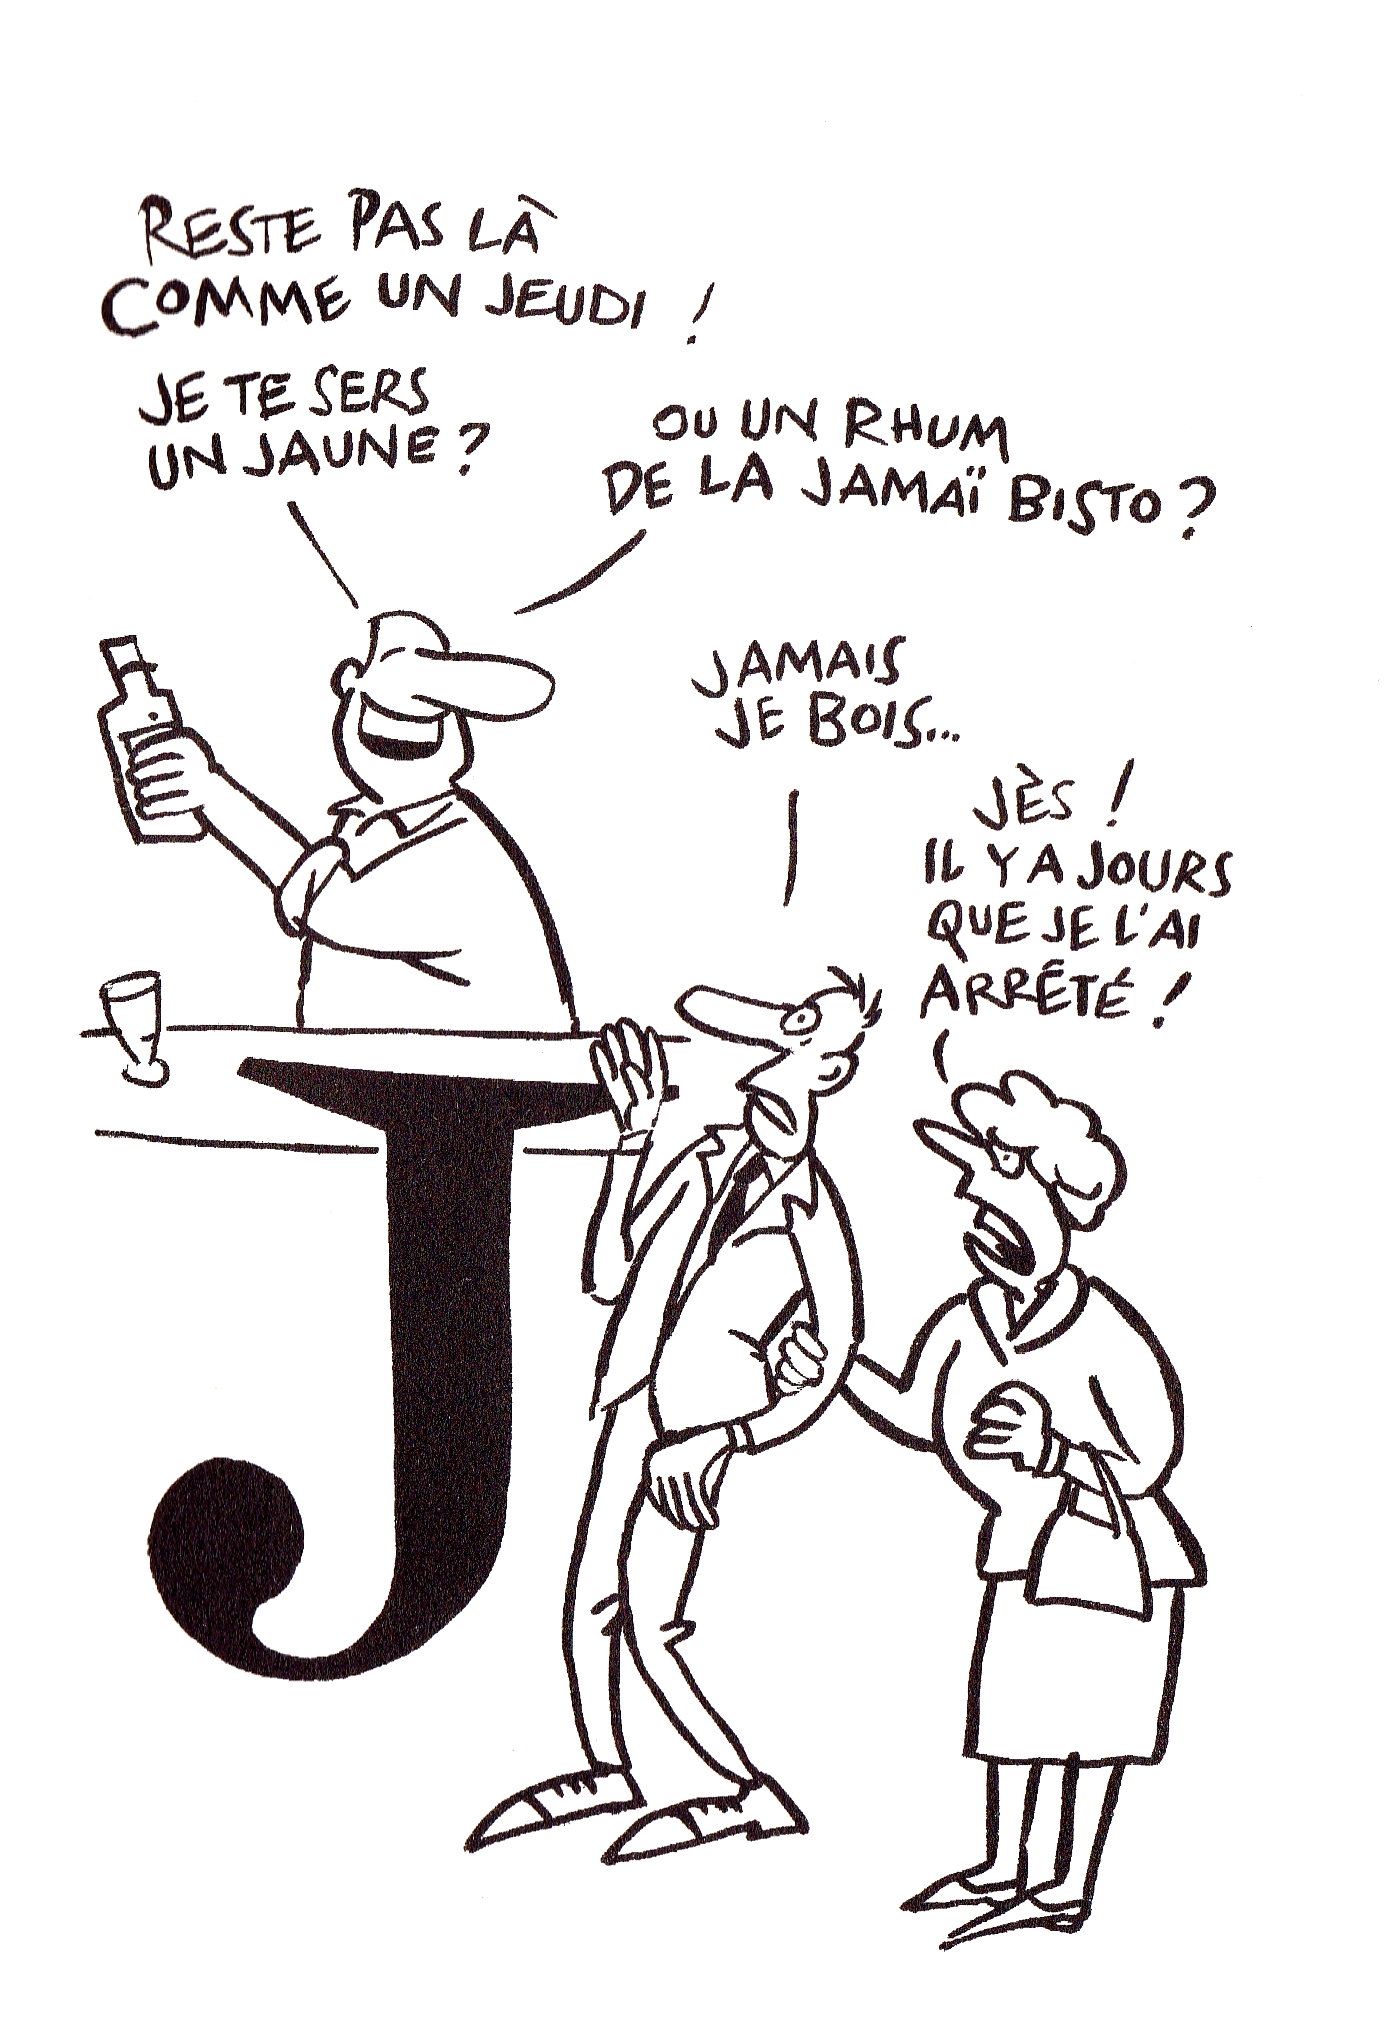 RESTE PAS LÀ
COMME UN JEUDI !
JE TE SERS
UN JAUNE ?
OU UN RHUM
DE LA JAMAÏ BISTO ?
JAMAIS
JE BOIS...
JÈS !
IL Y A JOURS
QUE JE L'AI
ARRÊTÉ !
J